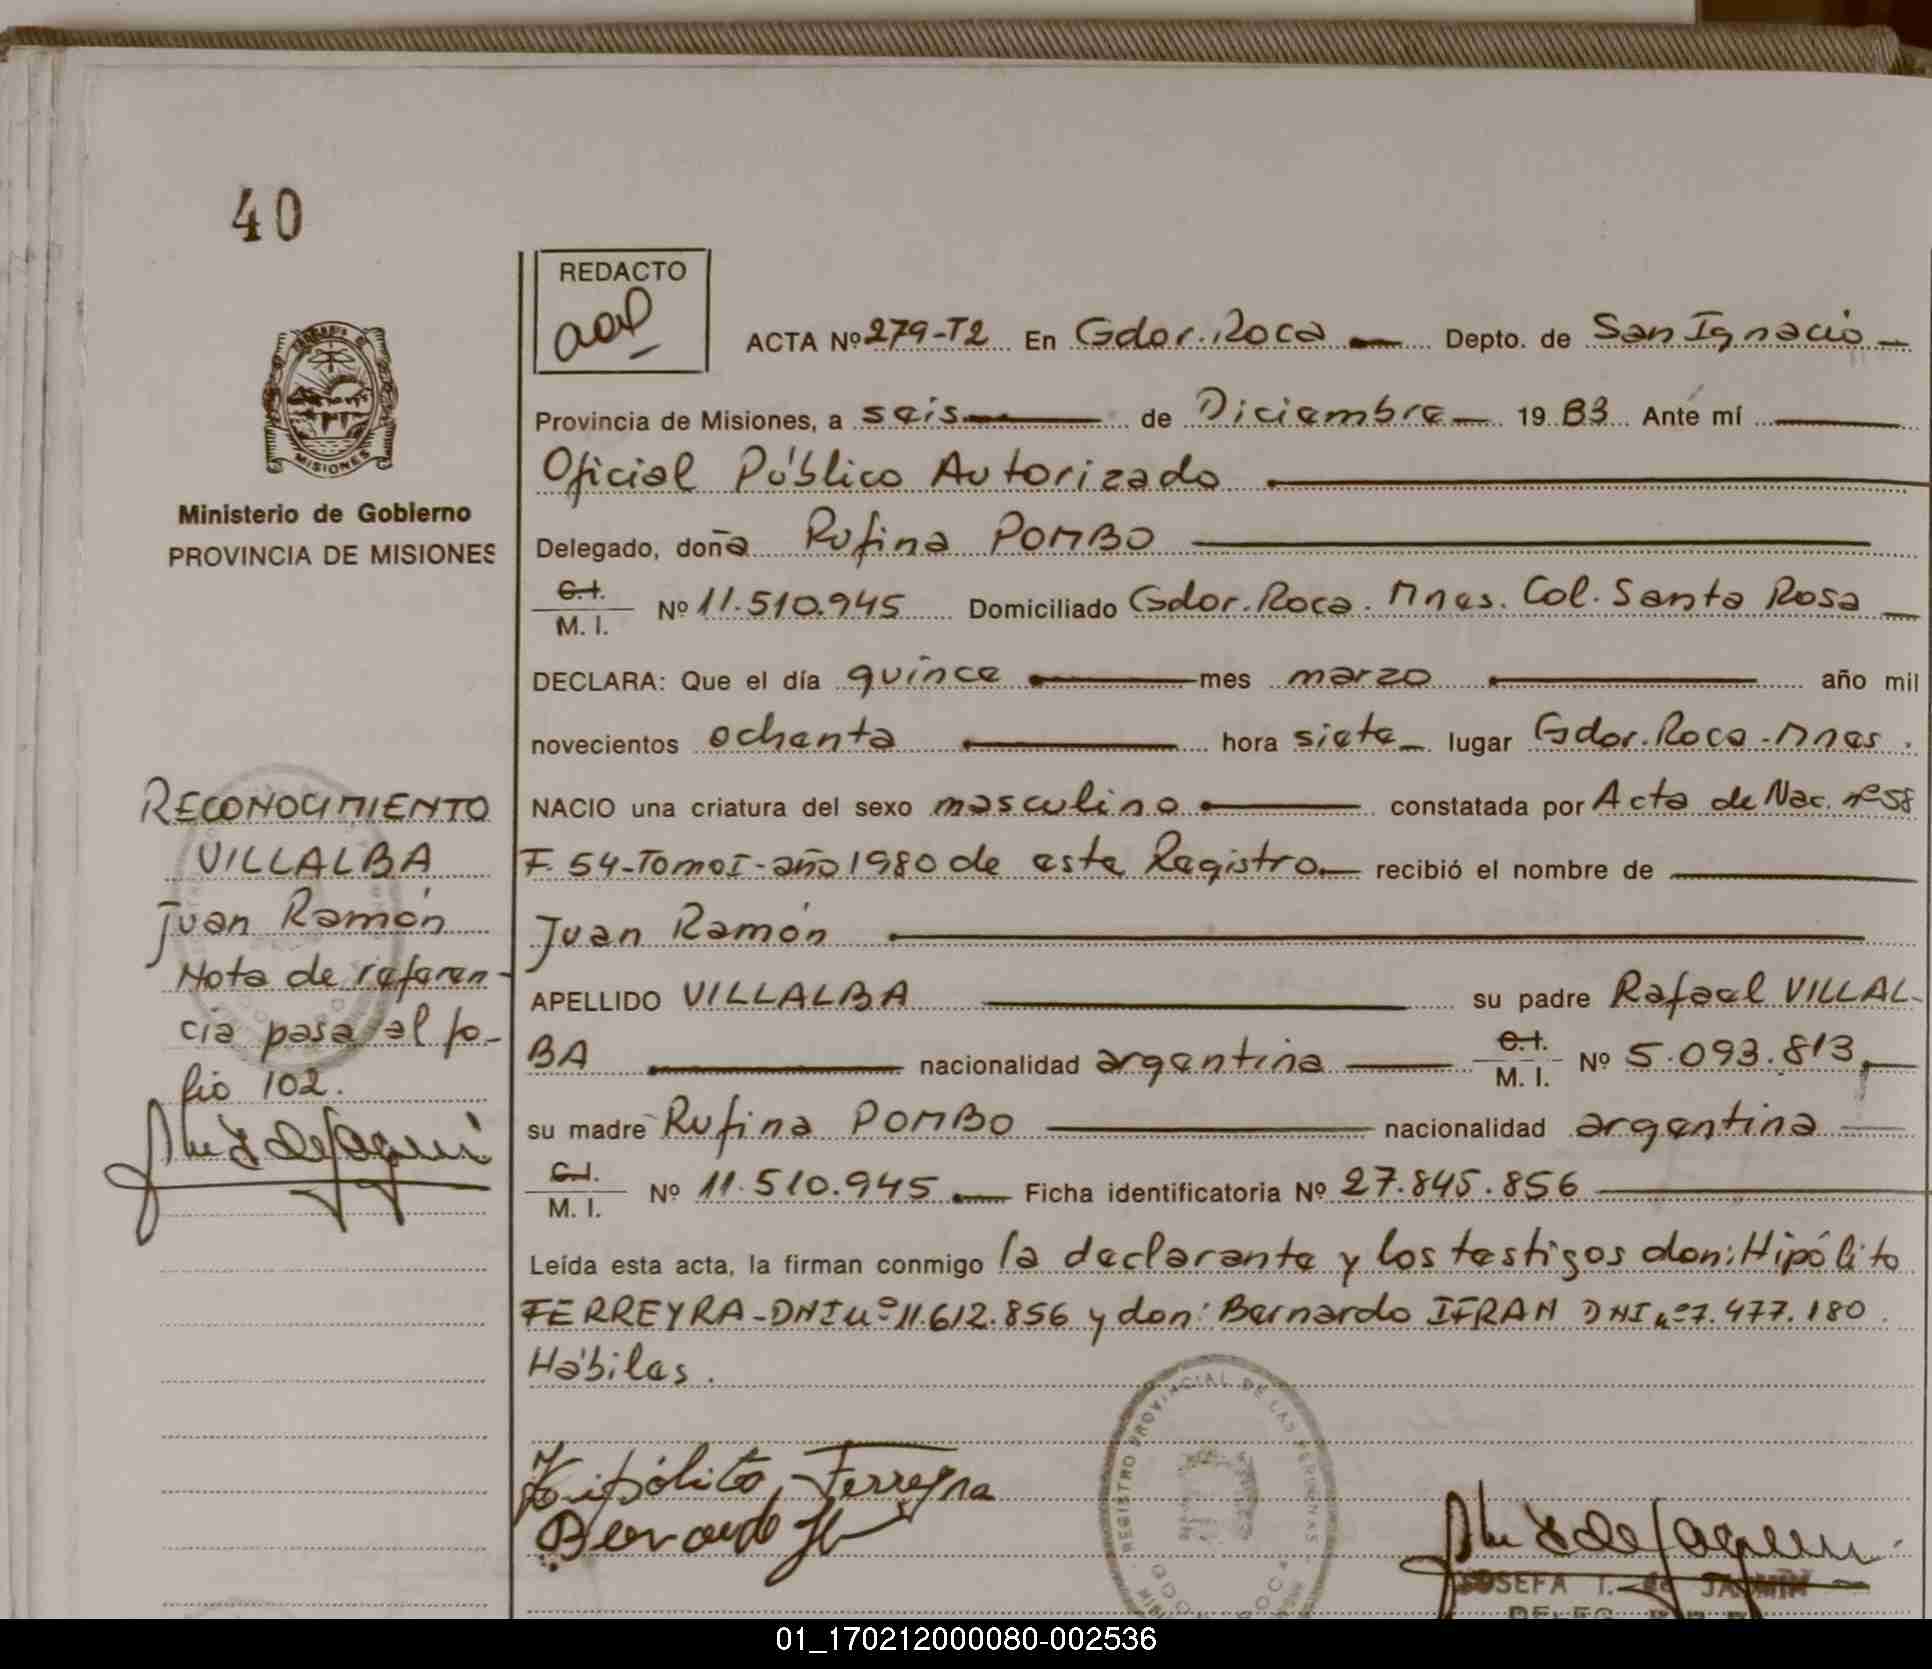 40
REDACTO
ACTA Nº 279-T2 En Gdor. Roca Depto. de San Ignacio
Provincia de Misiones, a seis de Diciembre 19 83 Ante mí
Oficial Público Autorizado
Delegado, doña Rufina POMBO
C.I. M. I. Nº 11.510.945 Domiciliado Gdor. Roca. Mnes. Col. Santa Rosa
DECLARA: Que el día quince mes marzo año mil
novecientos ochenta hora siete lugar Gdor. Roca - Mnes.
NACIO una criatura del sexo masculino constatada por Acta de Nac. nº 58
F. 54 - Tomo I - año 1980 de este Registro recibió el nombre de
Juan Ramón
APELLIDO VILLALBA su padre Rafael VILLAL-
BA nacionalidad argentina C.I. M. I. Nº 5.093.813
su madre Rufina POMBO nacionalidad argentina
C.I. M. I. Nº 11.510.945 Ficha identificatoria Nº 27.845.856
Leída esta acta, la firman conmigo la declarante y los testigos don: Hipólito
FERREYRA - DNI nº 11.612.856 y don: Bernardo IFRAN DNI nº 7.477.180.
Hábiles.
Hipólito Ferreyra
Bernardo
REGISTRO PROVINCIAL DE LAS PERSONAS
JOSEFA T. de
MISIONES
Ministerio de Gobierno
PROVINCIA DE MISIONES
RECONOCIMIENTO
VILLALBA
Juan Ramón
Nota de referen-
cia pasa al fo-
lio 102.
01_170212000080-002536